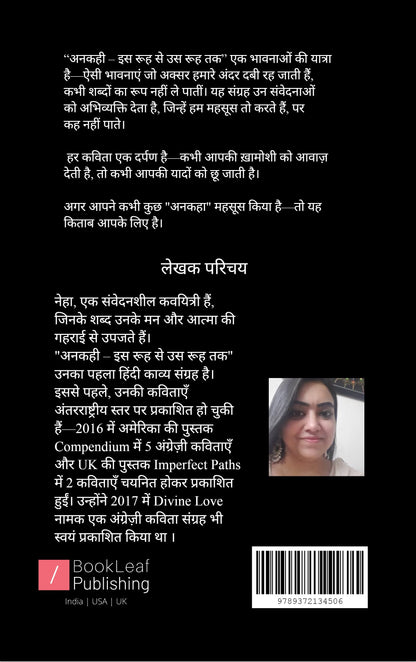 “अनकही – इस रूह से उस रूह तक” एक भावनाओं की यात्रा
है—ऐसी भावनाएं जो अक्सर हमारे अंदर दबी रह जाती हैं,
कभी शब्दों का रूप नहीं ले पातीं। यह संग्रह उन संवेदनाओं
को अभिव्यक्ति देता है, जिन्हें हम महसूस तो करते हैं, पर
कह नहीं पाते।
हर कविता एक दर्पण है—कभी आपकी ख़ामोशी को आवाज़
देती है, तो कभी आपकी यादों को छू जाती है।
अगर आपने कभी कुछ "अनकहा" महसूस किया है—तो यह
किताब आपके लिए है।
लेखक परिचय
नेहा, एक संवेदनशील कवयित्री हैं,
जिनके शब्द उनके मन और आत्मा की
गहराई से उपजते हैं।
"अनकही – इस रूह से उस रूह तक"
उनका पहला हिंदी काव्य संग्रह है।
इससे पहले, उनकी कविताएँ
अंतरराष्ट्रीय स्तर पर प्रकाशित हो चुकी
हैं—2016 में अमेरिका की पुस्तक
Compendium में 5 अंग्रेज़ी कविताएँ
और UK की पुस्तक Imperfect Paths
में 2 कविताएँ चयनित होकर प्रकाशित
हुईं। उन्होंने 2017 में Divine Love
नामक एक अंग्रेज़ी कविता संग्रह भी
स्वयं प्रकाशित किया था ।
BookLeaf
Publishing
India | USA | UK
9789372134506